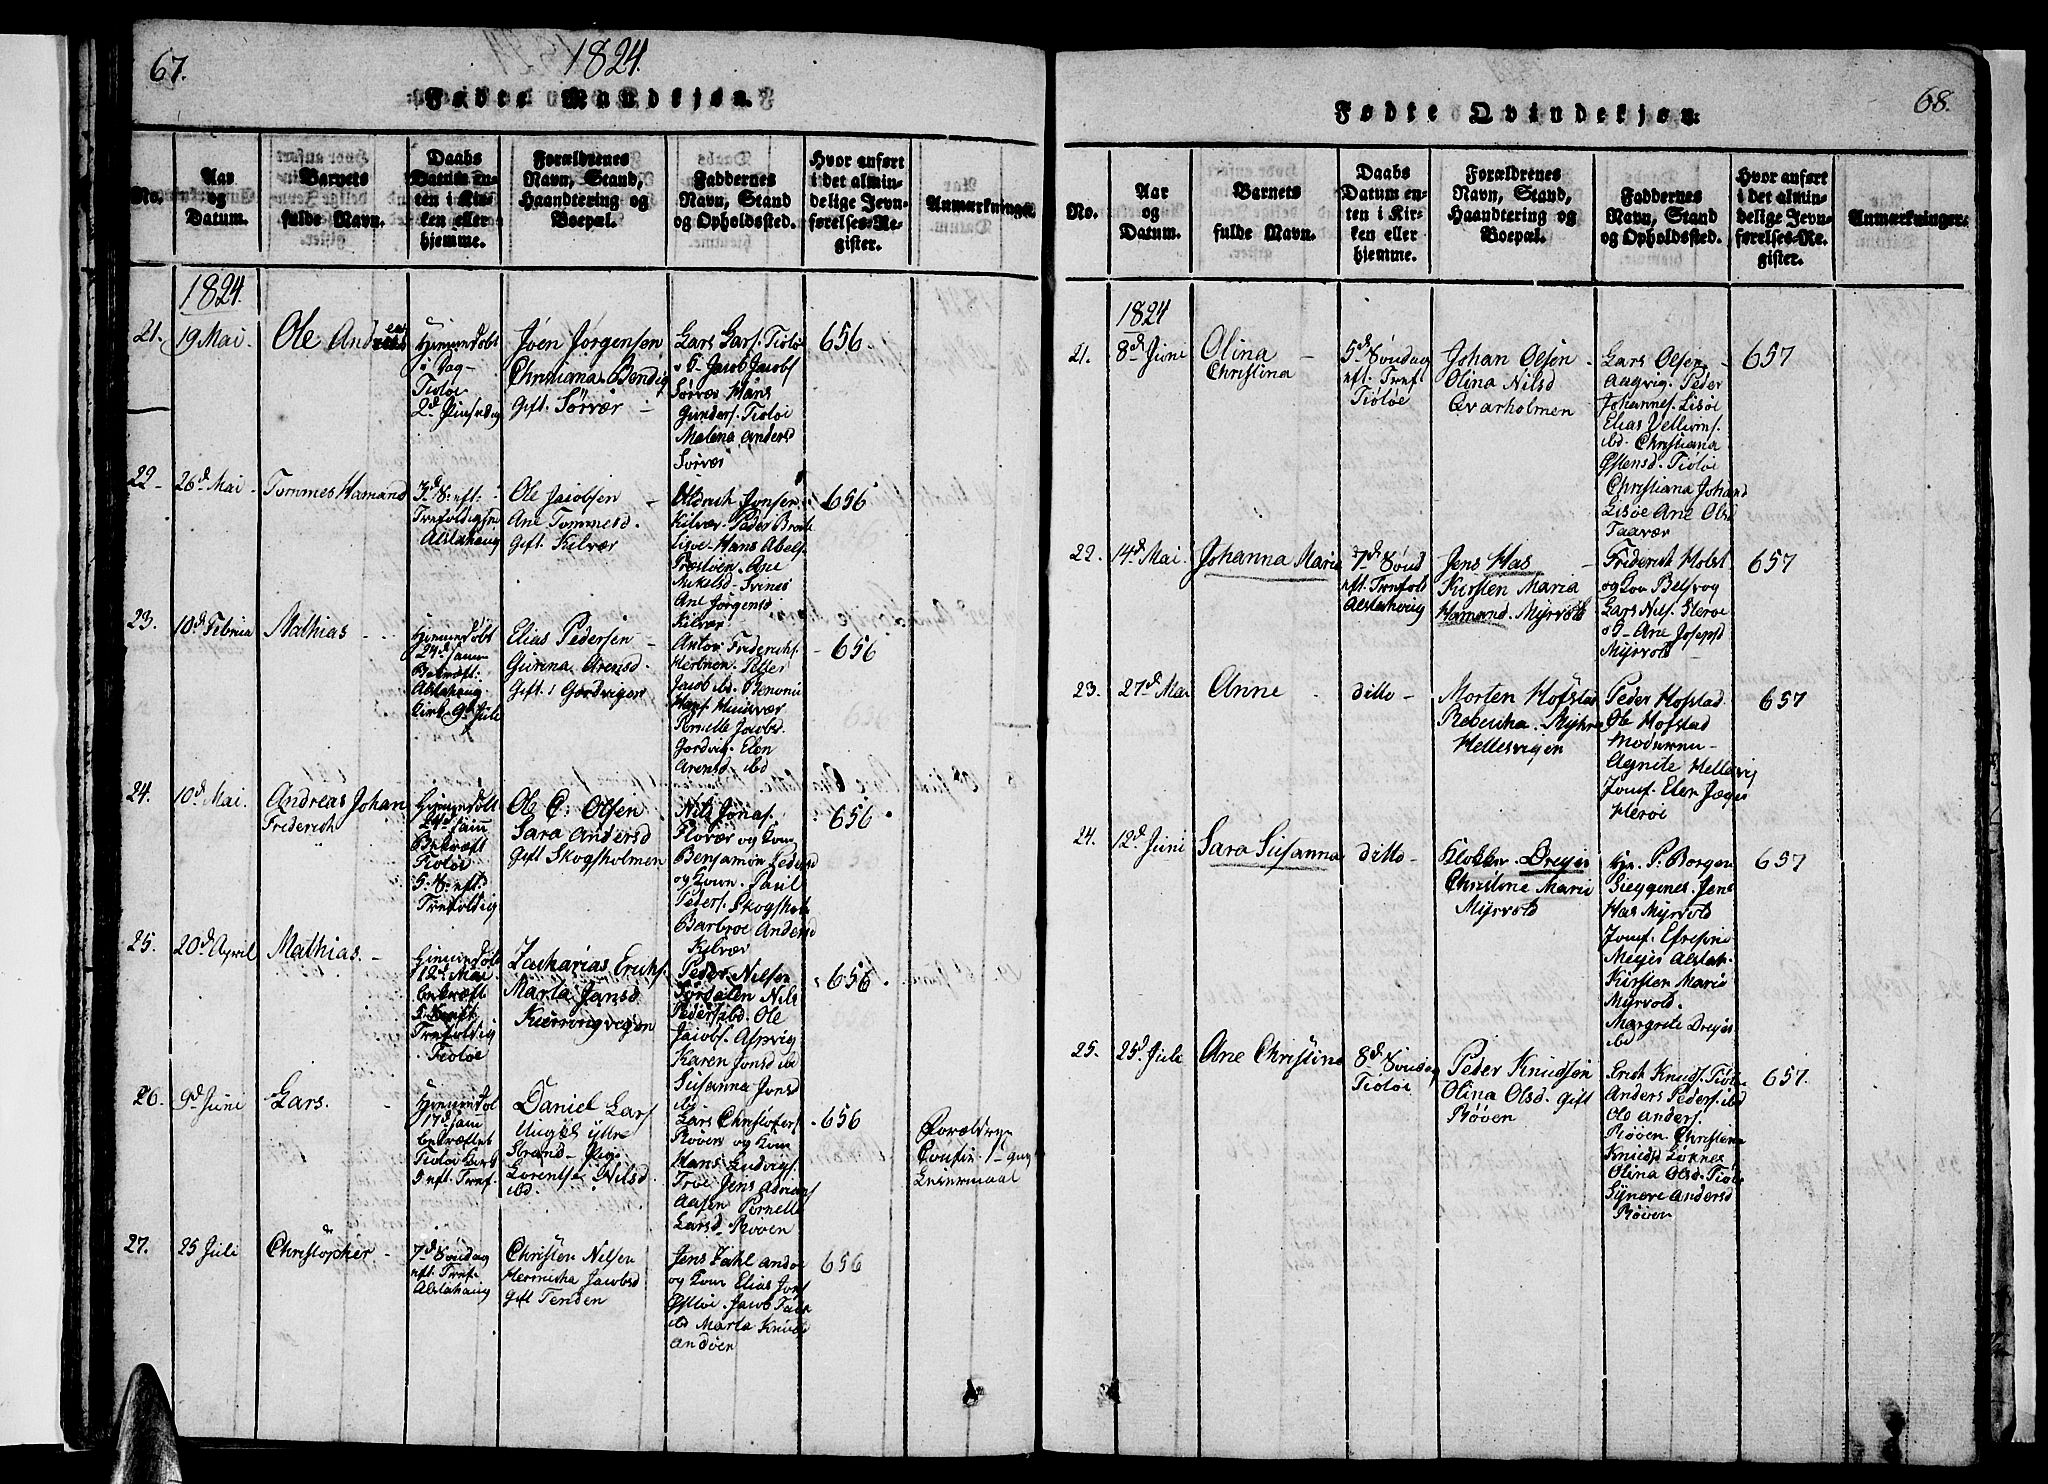 67.
1824.
Fødte Mandkjøn.
No.
Aar
og
Datum.
Barnets
fulde Navn.
Daabs
Datum en-
ten i Kir-
ken eller
hjemme.
Forældrenes
Navn, Stand,
Haandtering og
Boepæl.
Faddernes
Navn, Stand
og Opholdssted.
Hvor anført
i det almin-
delige Jevn-
førelses-Re-
gister.
Anmærkninger
1824.
21.
19 Mai
Ole Andreas
Hjemmedøbt
Tioløe
2d Pinsedag
Joen Jørgensen
Christiana Bendig
Gift. Sørvær
Lars Lars. Tioløe
Jacob Jacobs
Sørvær Hans
Gunders. Tioløe
Malena Andersd
Sørvær
656
22
26d Mai
Tommes Hamand
3d S. eft:
Trefoldigh
Alstahaug
Ole Jacobsen
Ane Tommesd.
Gift. Kilvær
Oldrich Jonsen
Kilvær. Peder Brodt
Lisøe. Hans Abels.
Præstøen. Ane
Mikelsd. Svinøe
Ane Jørgensd
Kilvær
656
23.
10d Februa
Mathias
Hjemmedøbt
24d jam
Bekræft:
Alstahaug
Kirk. 9d Juli
Elias Pedersen
Gurina Arensd.
Gift. Gordvigen
Anton Friderichs.
Hertnen. Petter
Jacob ibd. Benoni
Hans Huusvær
Pernille Jacobsd
Gordvig. Elen
Arensd. ibd
656
24.
10d Mai.
Andreas Johan
Friderich
Hjemmedøbt
24d jam
Bekræft
Tioløe
5. S. eft.
Trefoldig
Ole C. Olsen
Sara Andersd
gift Skogsholmen
Nils Jonas.
Flovær og Kone
Benjamin Peders
og Kone. Paul
Peders. Skogsholm
Barbroe Andersd
Kilvær
656
25.
20d April
Mathias.
Hjemmedøbt
12d Mai
bekræft
5 S. eft.
Trefoldig
Tioløe
Zacharias Erichs.
Marta Jansd
Kierringvigen
Peder Nilsen
Sørdalen Nils
Peders. ibd. Ole
Jacobs. Aspvig
Karen Jonsd ibd
Susanna Jonsd
ibd
656
26.
9d Juni
Lars.
Hjemmedøbt
17d jam
bekræftet
Tioløe
5 eft. Tref.
Daniel Lars
Ungk. ytre
Strand. Pige
Lorentse Nilsd.
ibd.
Lars Christofers
Røven og Kone
Hans Ludvigs.
Troe Jens Adrians
Aasen Pernelle
Larsd. Røven
656
Forældrene
Cousin 1ste gang
Leiermaal
27.
25 Juli
Christopher
7d Søndag
eft. Tref.
Alstahaug
Christen Nilsen
Hermicha Jacobsd
Gift Tenden
Jens Zahl Andøe
og Kone Elias Jons
Østløe. Jacob
ibd Marta Knuds
Andøen
656
68.
Fødte Qvindekjøn.
No.
Aar
og
Datum.
Barnets
fulde Navn.
Daabs
Datum en-
ten i Kir-
ken eller
hjemme.
Forældrenes
Navn, Stand,
Haandtering og
Boepæl.
Faddernes
Navn, Stand
og Opholdssted.
Hvor anført
i det almin-
delige Jevn-
førelses-Re-
gister.
Anmærkninger.
1824
21.
8d Juni
Olina
Christina
5d Søndag
eft. Tref
Tioløe
Johan Olsen
Olina Nilsd
Qvarholmen
Lars Olsen
Augvig. Peder
Johannes. Lisøe
Elias Vellums.
ibd. Christiana
Østensd. Tioløe
Christiana Johand
Lisøe Ane Olsd
Taavær
657
22.
14d Mai
Johanna Marie
7d Sønd
eft. Trefold
Alstahaug
Jens Has
Kirsten Maria
Hamand. Myrvold
Friderich Holst
og Kone Belsvog
Lars Nils. Herøe
Ane Josepsd
Myrvold
657
23.
27d Mai
Anne
ditto
Morten Hofstad
Rebecha Myhre
Hellesvigen
Peder Hofstad
Ole Hofstad
Moderen
Agnete Hellesvig
Jomf. Elen Jæger
Herøe
657
24.
12d Juni
Sara Susanna
ditto
Klokker Dreyer
Christine Marie
Myrvold
Hr. P. Borgen
Sieggenes. Jens
Has Myrvold
Jomf. Efresine
Meyer Alstah.
Kirsten Marie
Myrvold.
Margrete Dreyer
ibd
657
25.
25d Juli
Ane Christine
8d Søndag
Tioløe
Peder Knudsen
Olina Olsd. gift
Røven
Erich Knuds. Tioløe
Anders Peders. ibd
Ole Anders.
Røven. Christian
Knudsd Løknes
Olina Olsd. Tioløe
Synnere Andersd
Røven
657.